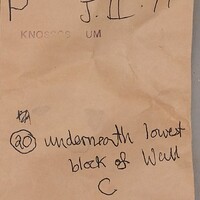 P J. II. 
KNOSSOS UM
20 underneath lowest
block of Wall
C